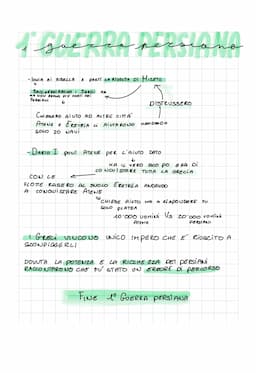 1° GUERRA PERSIANA
1° guerra persiana
LA RIVOLTA DI MILETO
DISTRUSSERO
CHIEDONO AIUTO AD ALTRE CITTÀ
ATENE E ERETRIA LI AIUTARONO MANDANDO
SOLO 20 NAVI
-DARIO I PUNÌ ATENE PER L'AIUTO DATO
MA IL VERO SCOPO ERA DI
CONQUISTARE TUTTA LA GRECIA
CON LE
FLOTTE RASERO AL SUOLO ERETRIA ANDANDO
A CONQUISTARE ATENE
CHIESE AIUTO MA A RISPONDERE FU
SOLO PLATEA
10 000 UOMINI VS 20 000 UOMINI
ATENE PERSIANI
I GRECI VINCONO UNICO IMPERO CHE E' RIUSCITO A
SCONFIGGERLI
DOVUTA LA POTENZA E LA RICCHEZZA DEI PERSIANI
RACCONTARONO CHE FU STATO UN ERRORE DI PERCORSO
FINE 1° GUERRA PERSIANA